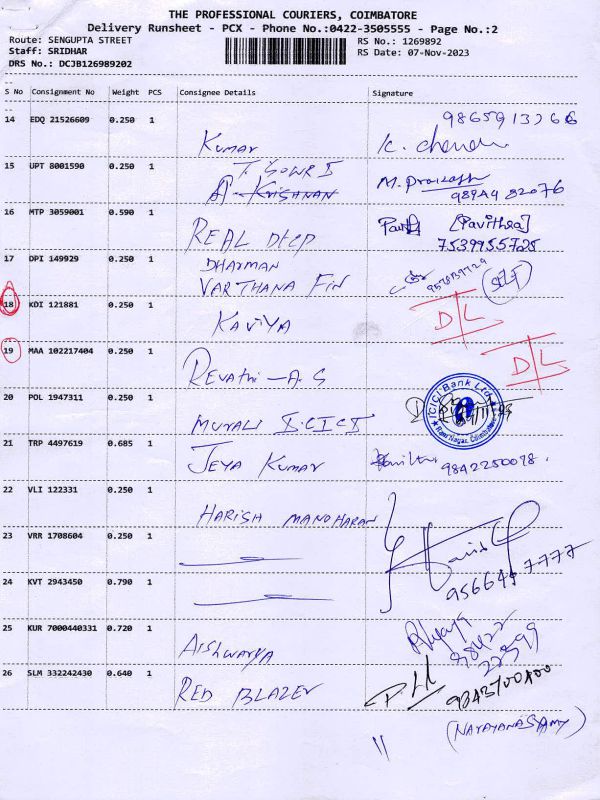 THE PROFESSIONAL COURIERS, COIMBATORE
Delivery Runsheet - PCX - Phone No.:0422-3505555 - Page No.:2
Route: SENGUPTA STREET
RS No.: 1269892
Staff: SRIDHAR
RS Date: 07-Nov-2023
DRS No.: DCJB126989202
S No Consignment No Weight PCS Consignee Details Signature
14 EDQ 21526609 0.250 1 Kumar
K. Chandru
15 UPT 8001590 0.250 1 T. GOWRI
A. KRISHNAN
M. Prakash
16 MTP 3059001 0.590 1 REAL
[Pavithra]
7539955725
17 DPI 149929 0.250 1 DHARMAN
VARTHANA FIN
SELF
18 KDI 121881 0.250 1 KAVIYA
D/L
19 MAA 102217404 0.250 1 Revathi - A. S
D/L
20 POL 1947311 0.250 1 MURALI ICICI
ICICI Bank Ltd.
Ram Nagar, Coimbatore
21 TRP 4497619 0.685 1 JEYA KUMAR
9842250098.
22 VLI 122331 0.250 1 HARISH MANOHARAN
23 VRR 1708604 0.250 1
24 KVT 2943450 0.790 1
25 KUR 7000440331 0.720 1 AISHWARYA
98422
22599
26 SLM 332242430 0.640 1 RED BLAZER
9843700400
(NARAYANASAMY)